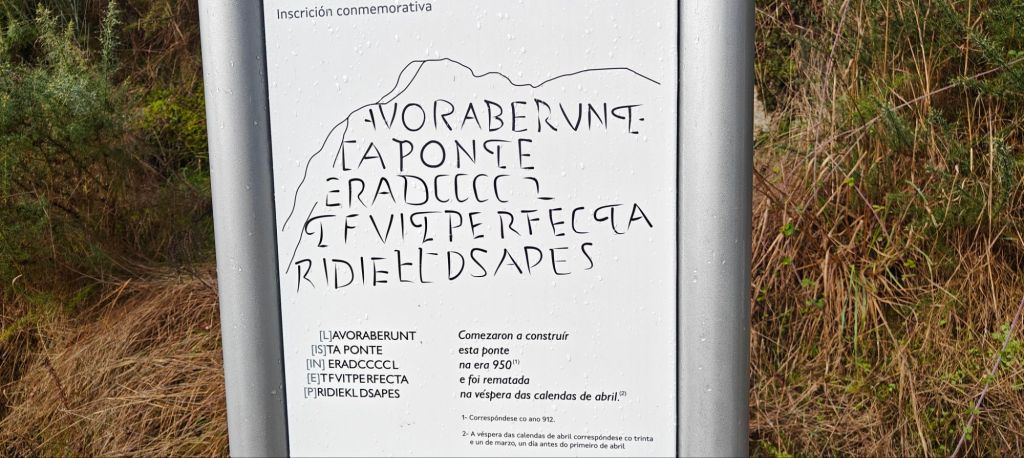 Inscrición conmemorativa
AVORABERUNT
TA PONTE
ERADCCCCL
T FVIT PERFECTA
RIDIEKLDSAPES
[L]AVORABERUNT
[IS]TA PONTE
[IN] ERADCCCCL
[E]TFVITPERFECTA
[P]RIDIEKL DSAPES
Comezaron a construír
esta ponte
na era 950(1)
e foi rematada
na véspera das calendas de abril.(2)
1- Correspóndese co ano 912.
2- A véspera das calendas de abril correspóndese co trinta
e un de marzo, un día antes do primeiro de abril